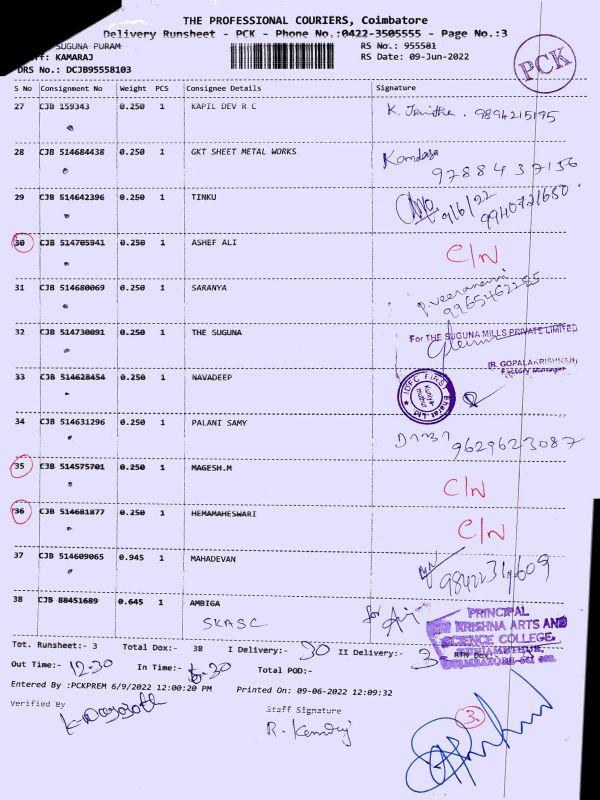 THE PROFESSIONAL COURIERS, Coimbatore
Delivery Runsheet - PCK - Phone No.:0422-3505555 - Page No.:3
SUGUNA PURAM
RS No.: 955581
KAMARAJ
RS Date: 09-Jun-2022
DRS No.: DCJB95558103
PCK
S No Consignment No Weight PCS Consignee Details Signature
27 CJB 159343 0.250 1 KAPIL DEV R C
K. 9894215195
28 CJB 514684438 0.250 1 GKT SHEET METAL WORKS
9788437156
29 CJB 514642396 0.250 1 TINKU
9/6/22 9940721650
30 CJB 514705941 0.250 1 ASHEF ALI C/N
31 CJB 514680069 0.250 1 SARANYA
9965462255
32 CJB 514730091 0.250 1 THE SUGUNA
For THE SUGUNA MILLS PRIVATE LIMITED
(R. GOPALAKRISHNAN)
Factory Manager
33 CJB 514628454 0.250 1 NAVADEEP
IDFC FIRST Bharat Ltd
34 CJB 514631296 0.250 1 PALANI SAMY
9629623087
35 CJB 514575701 0.250 1 MAGESH.M C/N
36 CJB 514681877 0.250 1 HEMAMAHESWARI C/N
37 CJB 514609065 0.945 1 MAHADEVAN
38 CJB 88451689 0.645 1 AMBIGA
SKASC
for
PRINCIPAL
KRISHNA ARTS AND
SCIENCE COLLEGE,
Tot. Runsheet:- 3 Total Dox:- 38 I Delivery:- 30 II Delivery:- 3 RTN Dox:-
Out Time:- 12-30 In Time:- 6-30 Total POD:-
Entered By :PCKPREM 6/9/2022 12:00:20 PM Printed On: 09-06-2022 12:09:32
Verified By
Staff Signature
3.
R.